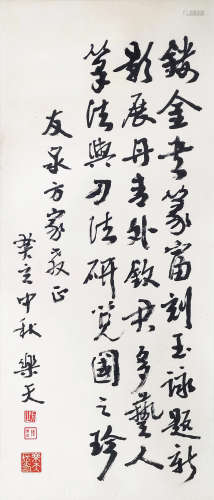 鏤金書篆富刻玉詠題新
影展丹青外欽君多藝人
筆法與刀法研覓國之珍
友泉方家教正
癸亥中秋樂天